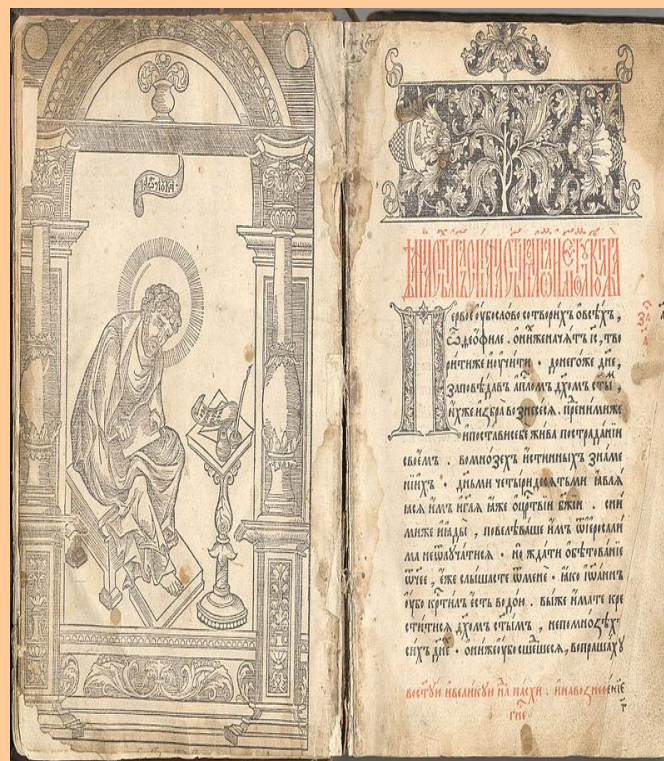 Первое ѹ҆бо слово сотворихъ ѡвсѣхъ ,
ѽ деѡфиле . ѡ҆ниженачѧтъ і҆с , тво
ритиже иѹ҆чити . донегоже дн҃е ,
заповѣдавъ а҆пⷭ҇лѡмъ дх҃омъ ст҃ы ,
и҆хже и҆збра вознесесѧ . преⷣнимиже
и҆постависебе жива пострадании
своемъ . вомнозехъ и҆стинныхъ знаме
нїихъ . дн҃ьми четыридесѧтьми ꙗ҆влѧ
ꙗсѧ и҆мъ и҆гл҃ѧ ꙗ҆же ѡ҆црⷭ҇твїи бж҃їи . сни
миже и҆ꙗды , повелѣваше и҆мъ ѿі҆ерⷭ҇али
ма неѿлучатисѧ . но ждати ѡ҆бѣтованїе
ѿч҃ее , е҆же слышасте ѿмене . ꙗ҆ко і҆ѡаннъ
ѹ҆бо крⷭ҇тилъ е҆сть водою . выже и҆мате кре
ститисѧ дх҃омъ ст҃ымъ , непомноѕѣхъ
сихъ дн҃е . ѡ҆ниже ѹ҆бо сшеⷣшесѧ , вопрашахѹ